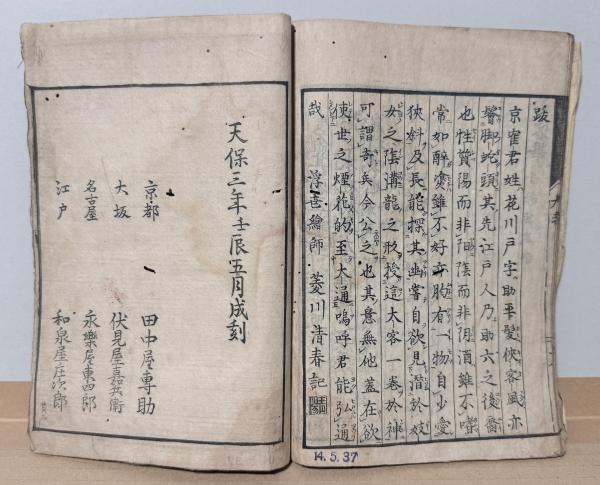 跋
京寉君姓花川戸字助平髪俠客風亦
鬠脚蛇頭其先江戸人乃助六之後裔
也性質陽而非陽陰而非陰酒雖不嗜
常如醉煲雖不好亦朐有一物自少愛
狹斜及長能探其幽嘗自欲見潛於妓
女之陰溝龍之形授這大客一卷於神
可謂奇兵今公之也其意無他蓋在欲
使世之煙花的至大通嗚呼君能弘通
哉 浮世繪師 菱川清春記
天保三年壬辰五月成刻
京都 田中屋專助
大坂 伏見屋嘉兵衛
名古屋 永樂屋東四郎
江戸 和泉屋庄次郎
14.5.37